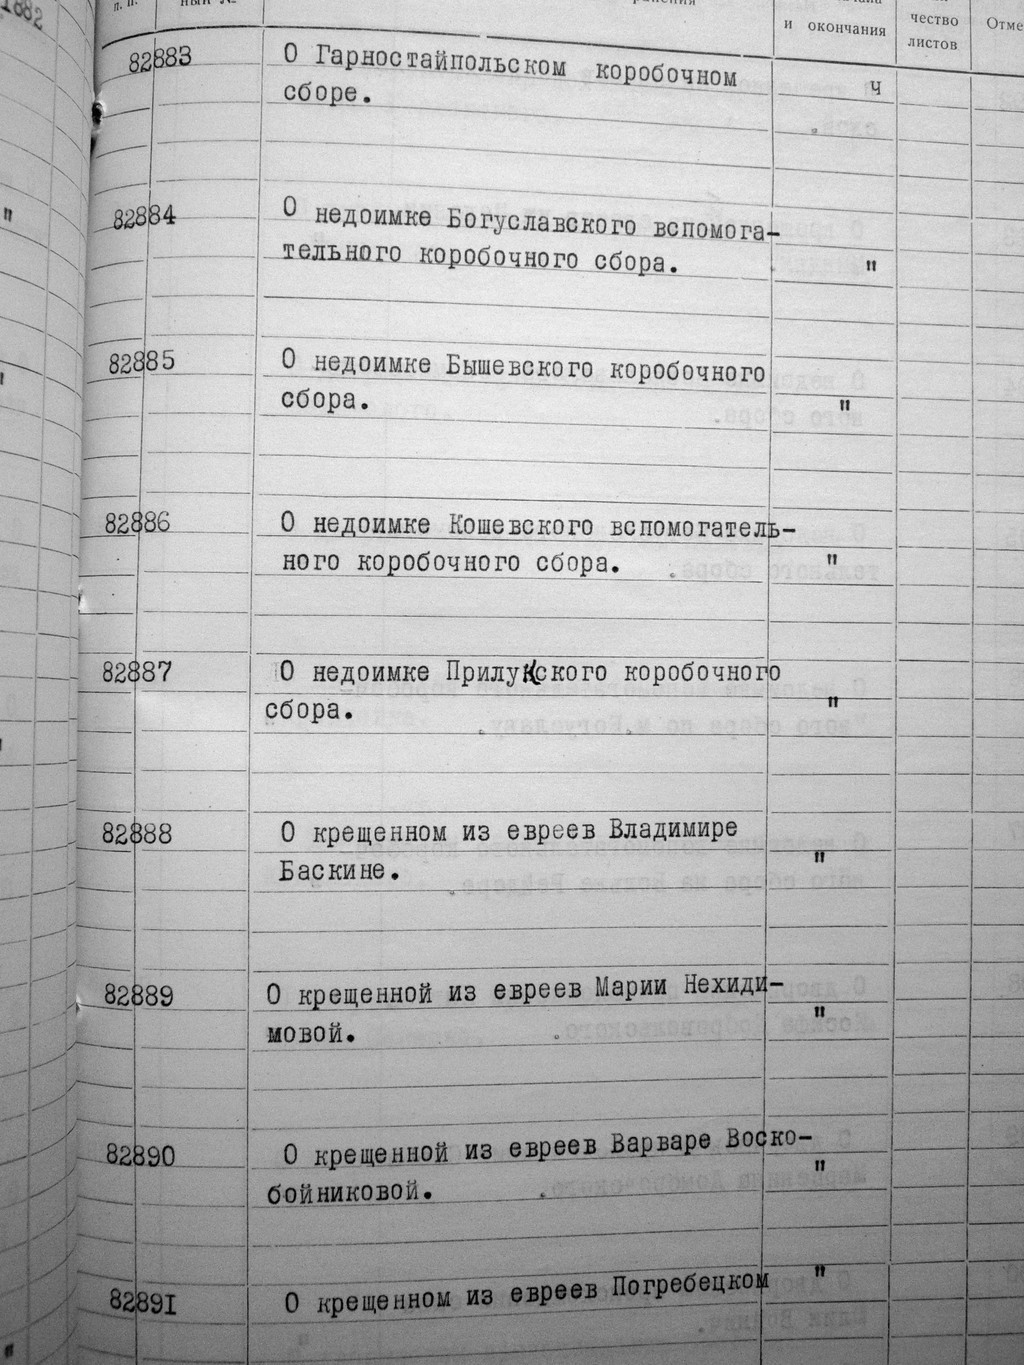 1882
п. п.
ный №
и окончания
чество
листов
Отме
82883 О Гарностайпольском коробочном ч
сборе.
82884 О недоимке Богуславского вспомога-
тельного коробочного сбора. "
82885 О недоимке Бышевского коробочного
сбора. "
82886 О недоимке Кошевского вспомогатель-
ного коробочного сбора. "
82887 О недоимке Прилукского коробочного
сбора. "
82888 О крещенном из евреев Владимире
Баскине. "
82889 О крещенной из евреев Марии Нехиди-
мовой. "
82890 О крещенной из евреев Варваре Воско-
бойниковой. "
82891 О крещенном из евреев Погребецком "